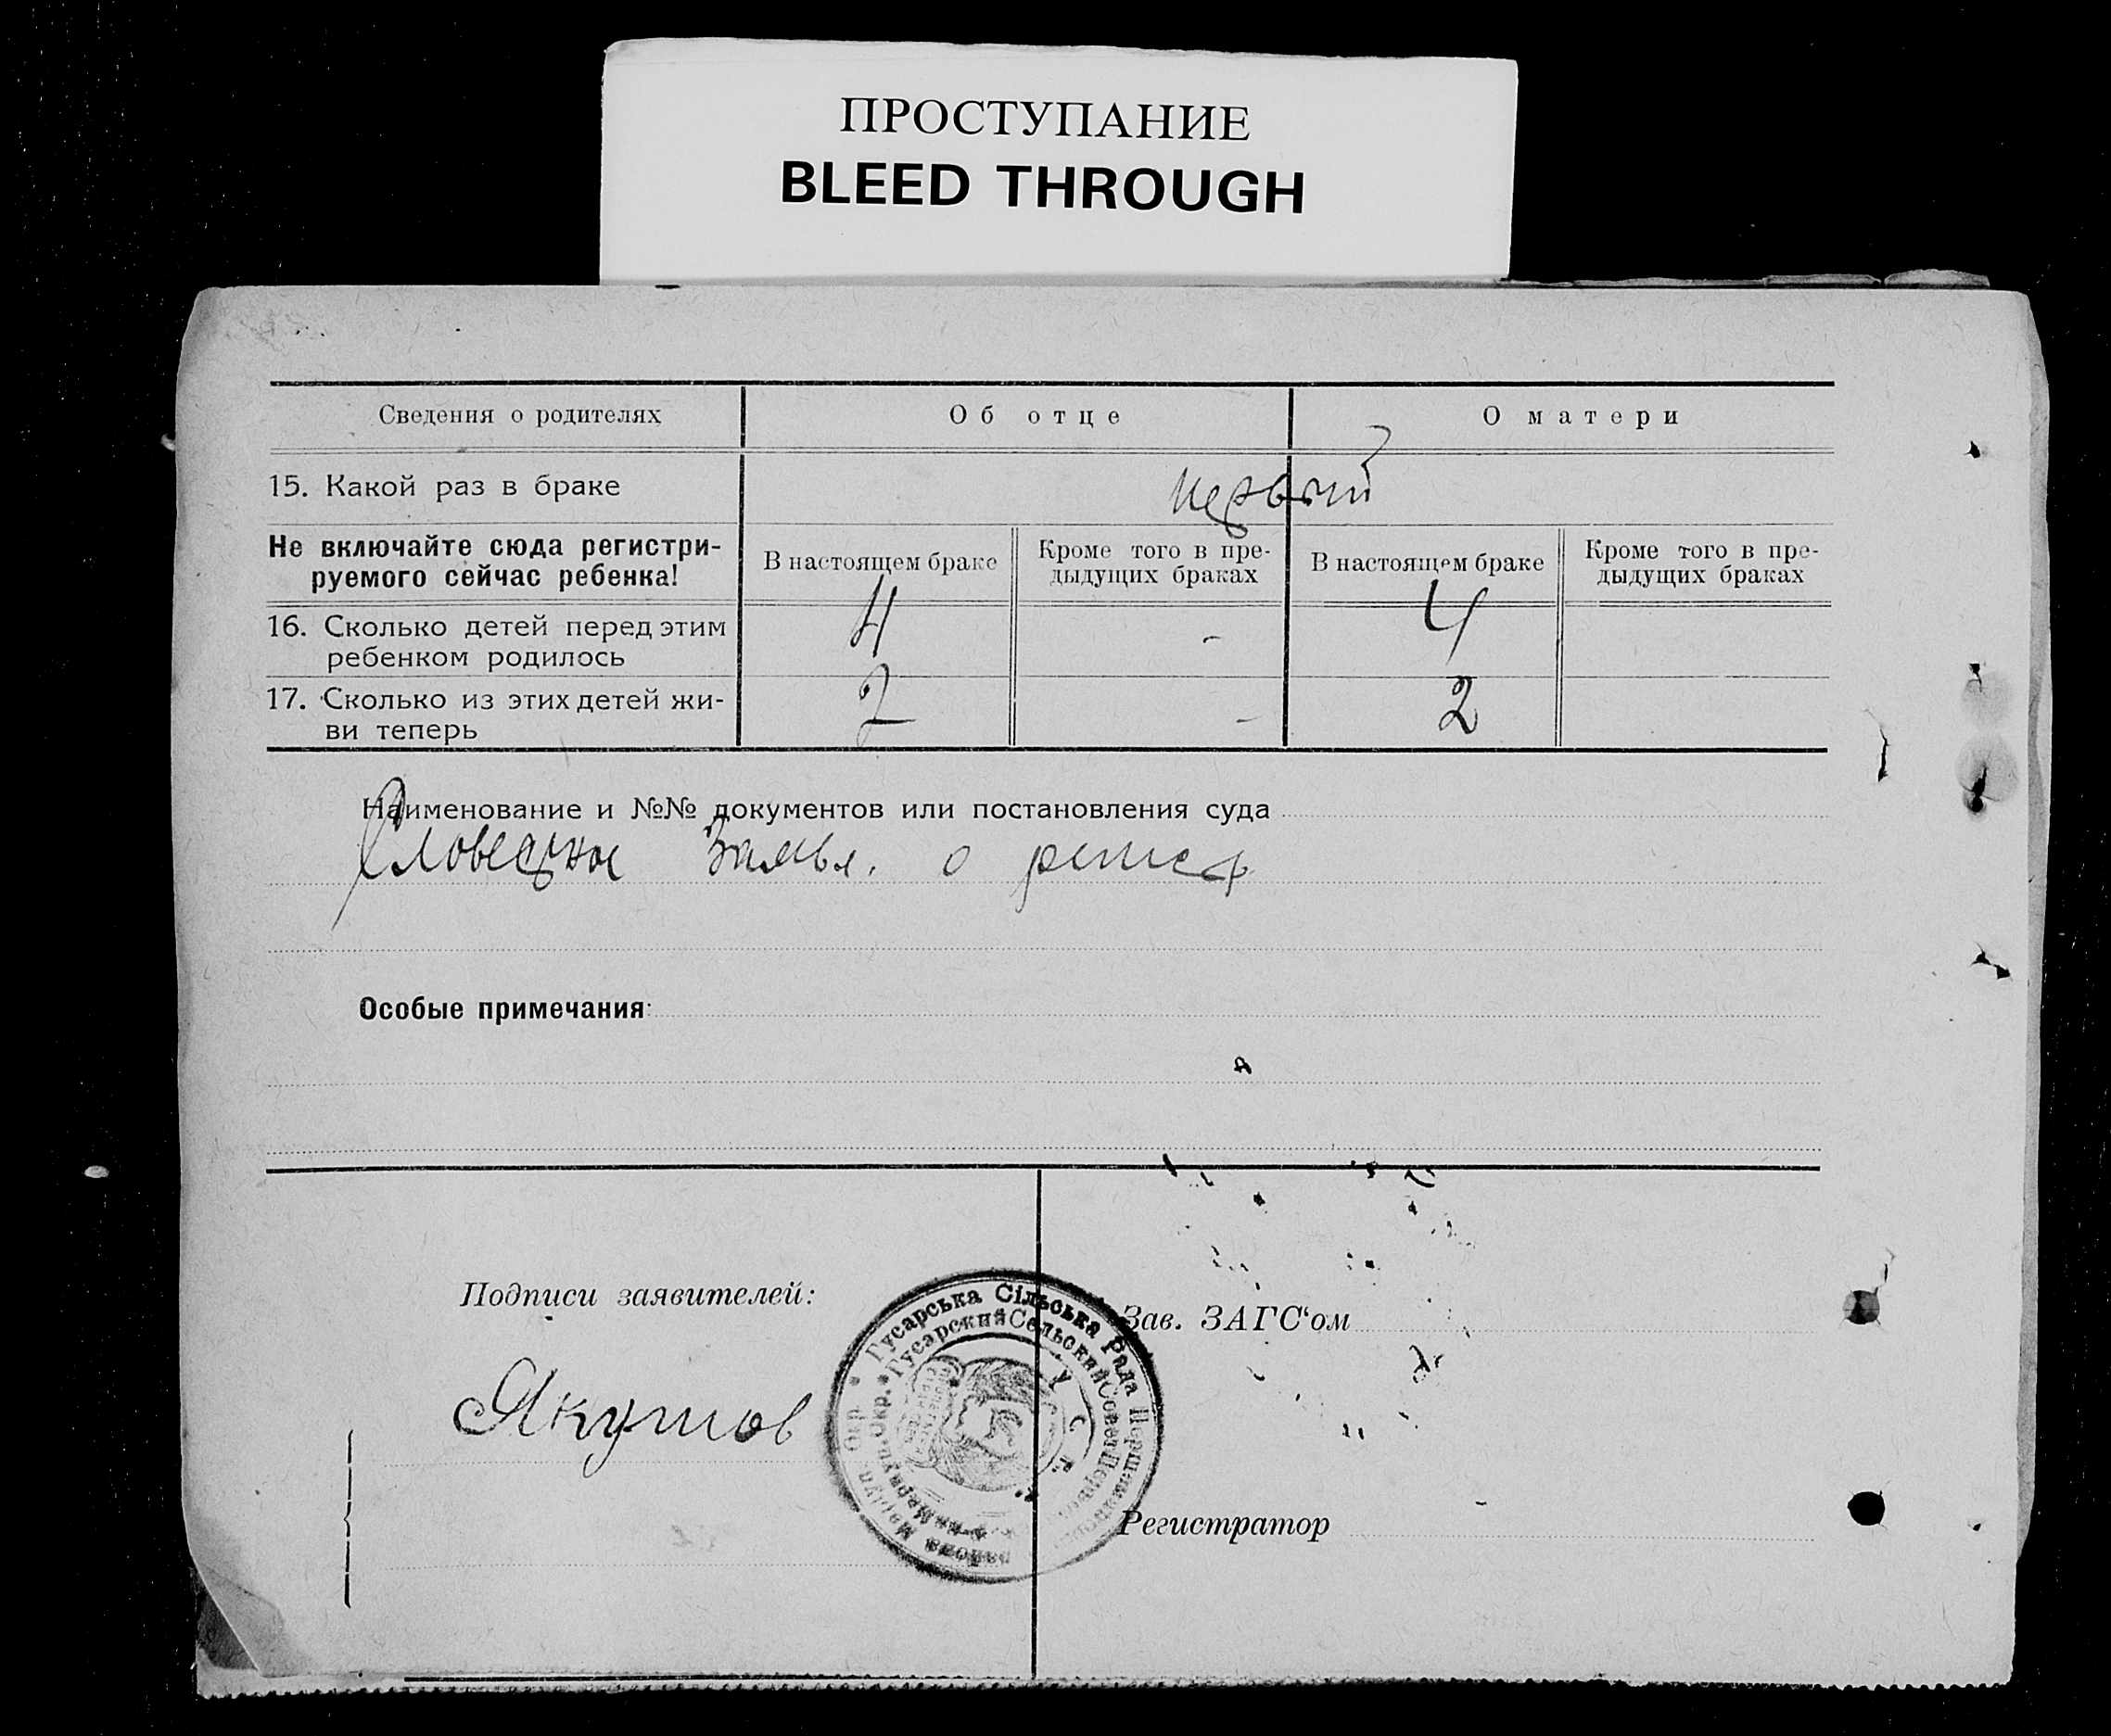 ПРОСТУПАНИЕ
BLEED THROUGH
Сведения о родителях
Об отце
О матери
15. Какой раз в браке
первый
Не включайте сюда регистри-
руемого сейчас ребенка!
В настоящем браке
Кроме того в пре-
дыдущих браках
В настоящем браке
Кроме того в пре-
дыдущих браках
16. Сколько детей перед этим
ребенком родилось
4
-
4
17. Сколько из этих детей жи-
ви теперь
2
-
2
Наименование и №№ документов или постановления суда
Словесное Заявл. о
Особые примечания:
Подписи заявителей:
Якушов
Зав. ЗАГС‘ом
Регистратор
Гусарська Сільська Рада
Гусарский Сельский Совет
У С С Р.